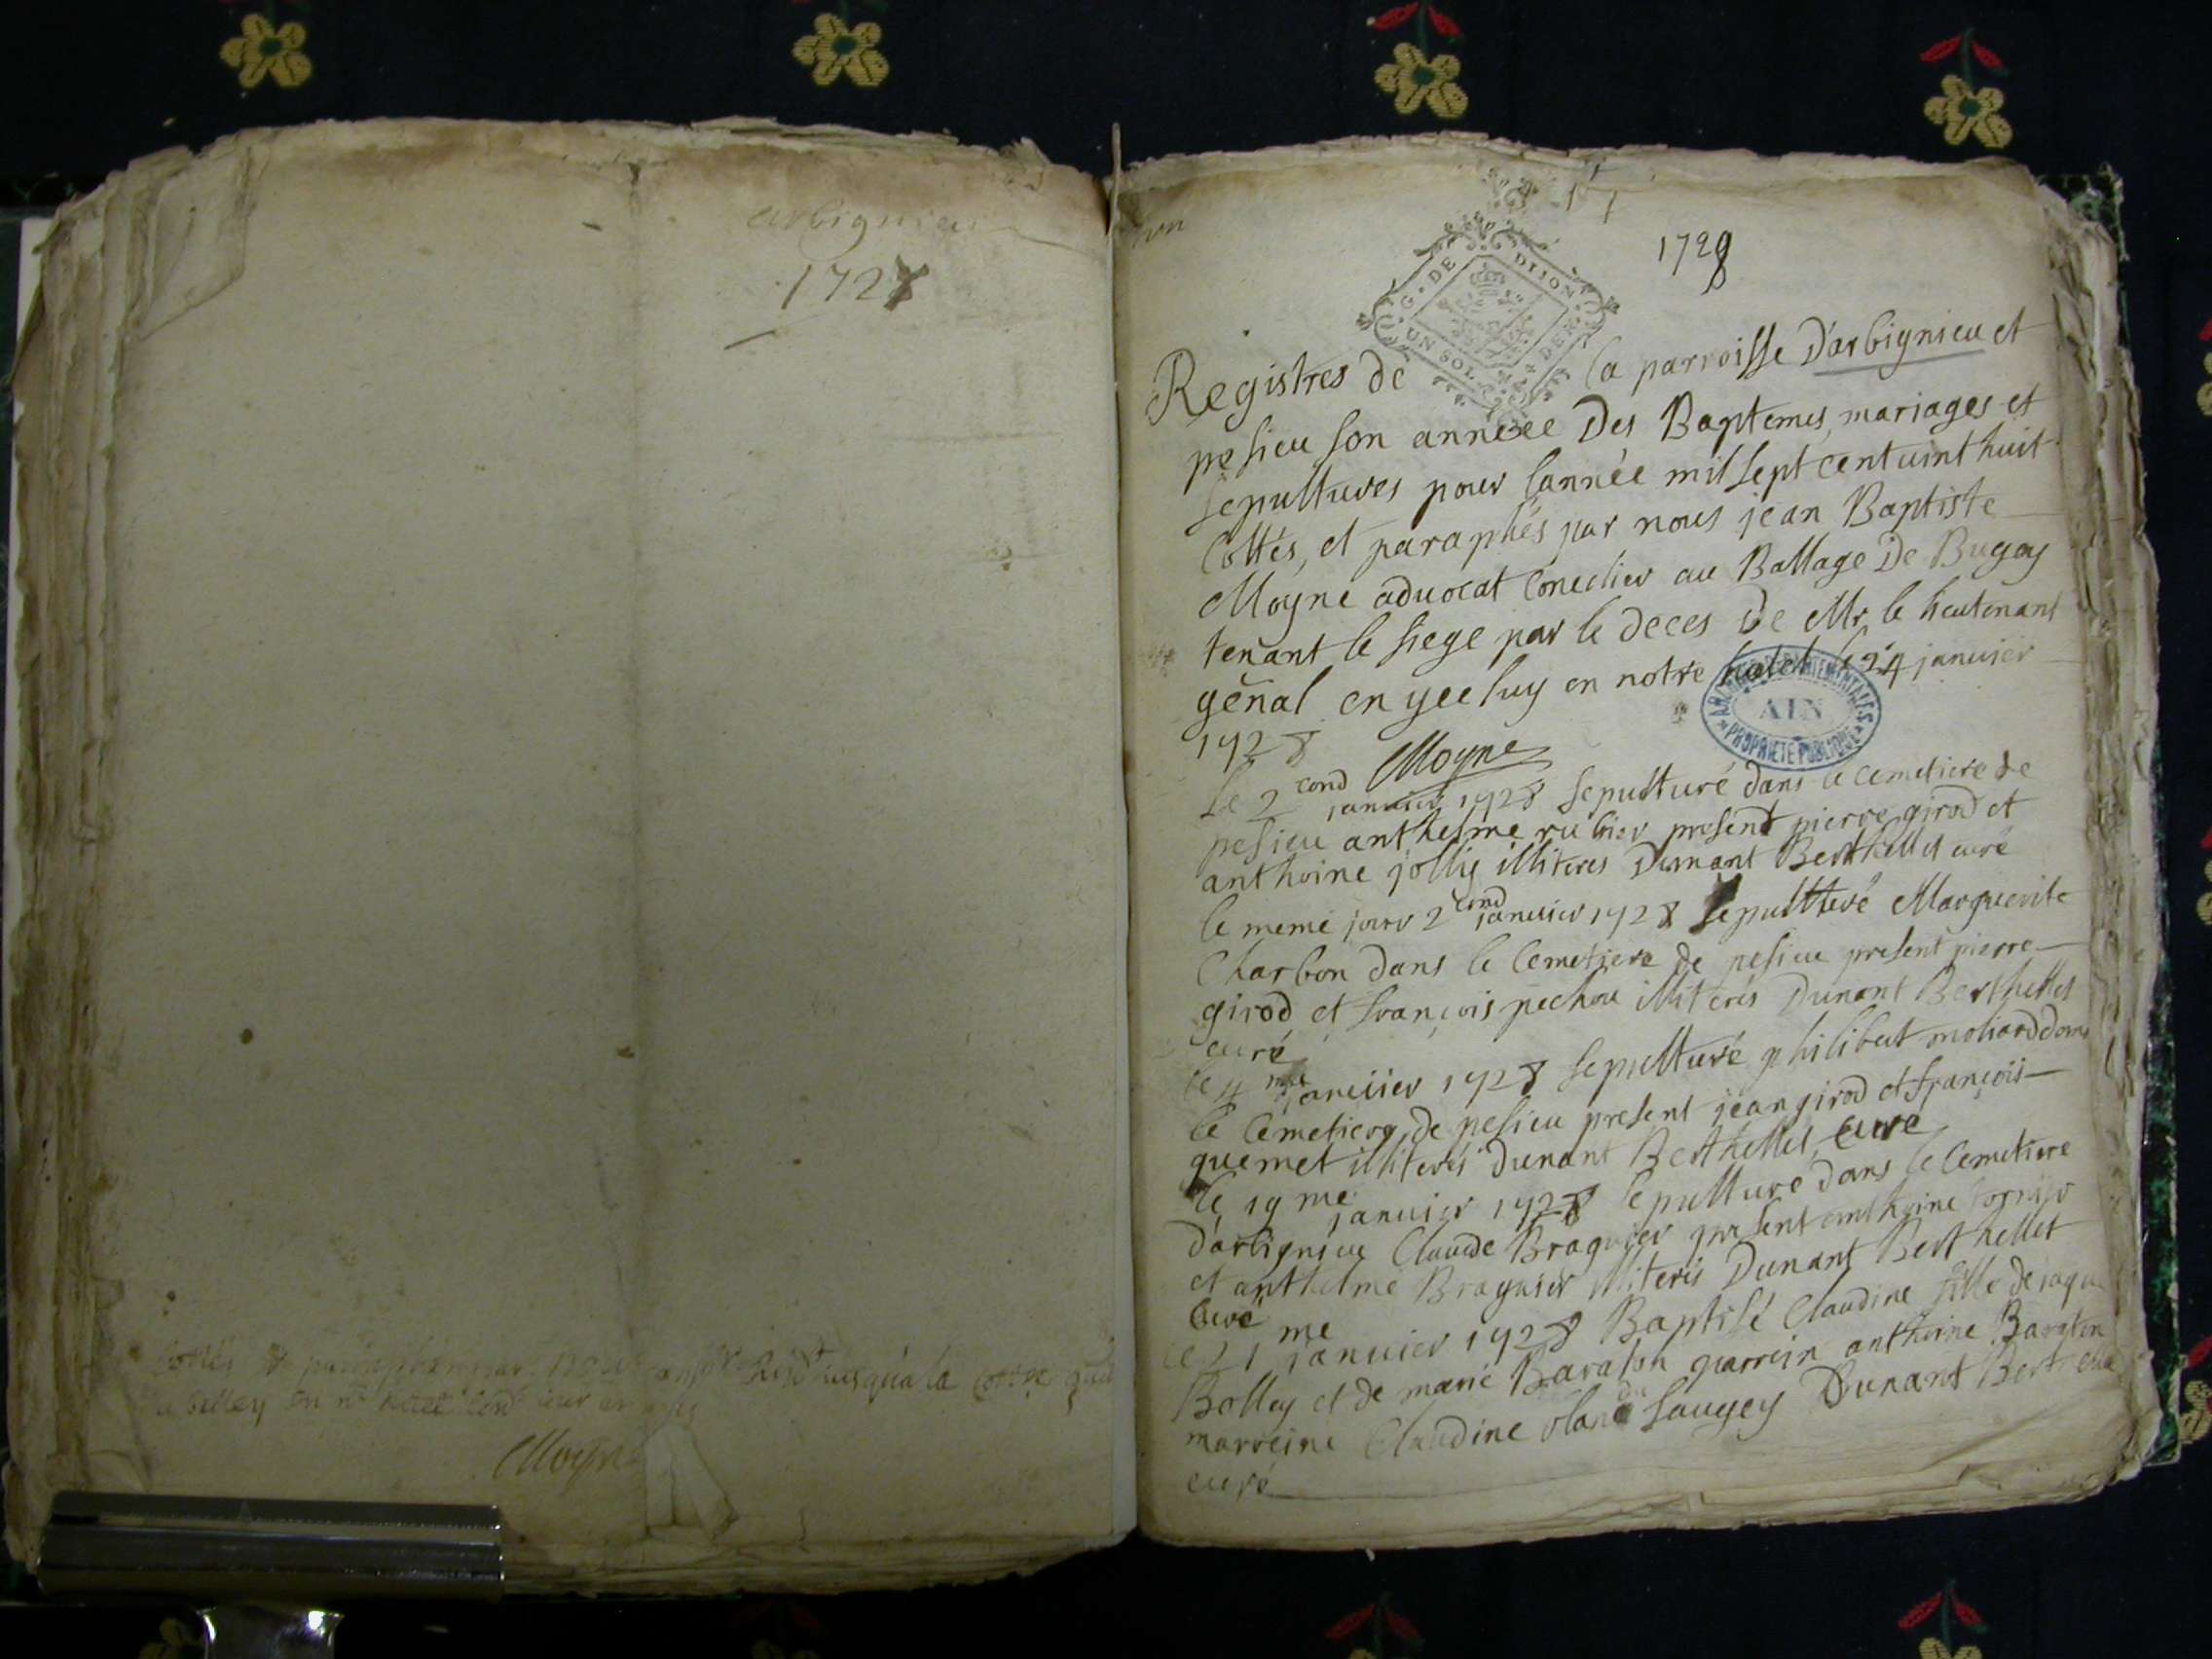 arbignieu
1728
Moyne
1728
G. DE DIJON
UN SOL 4 DEN.
Registres de la parroisse D'arbignieu et
pesieu son annexee Des Baptemes, mariages et
sepultures pour lannée mil sept cent uint huit
Cottés, et paraphés par nous jean Baptiste
Moyne aduocat Coneclier au Ballage De Bugey
tenant le siege par le deces De Mr le lieutenant
genal en yceluy en notre hotel le 24 januier
1728 Moyne
ARCHIVES DEPARTEMENTALES
AIN
PROPRIETE PUBLIQUE
Le 2cond januier 1728 sepulturé dans le cemetiere de
pesieu anthelme present pierre girod et
anthoine jolly illiteres Dunant Berthellet curé
le meme jour 2cond januier 1728 sepulturé Marguerite
Charbon dans le Cemetiere de pesieu present pierre
girod et françois pechou illiterés Dunant Berthellet
curé
le 4me januier 1728 sepulturé philibert moliard dans
le Cemetiere de pesieu present jean girod et françois
quemet illiterés Dunant Berthellet, curé
le 19me januier 1728 sepulturé dans le Cemetiere
d'arbignieu Claude Braguier present anthoine
et anthelme Braguier illiterés Dunant Berthellet
curé
le 21me januier 1728 Baptisé Claudine fille de jaque
Bolley et de marie Baraton parrein anthoine Baraton
marreine Claudine Saugey Dunant Berthellet
curé